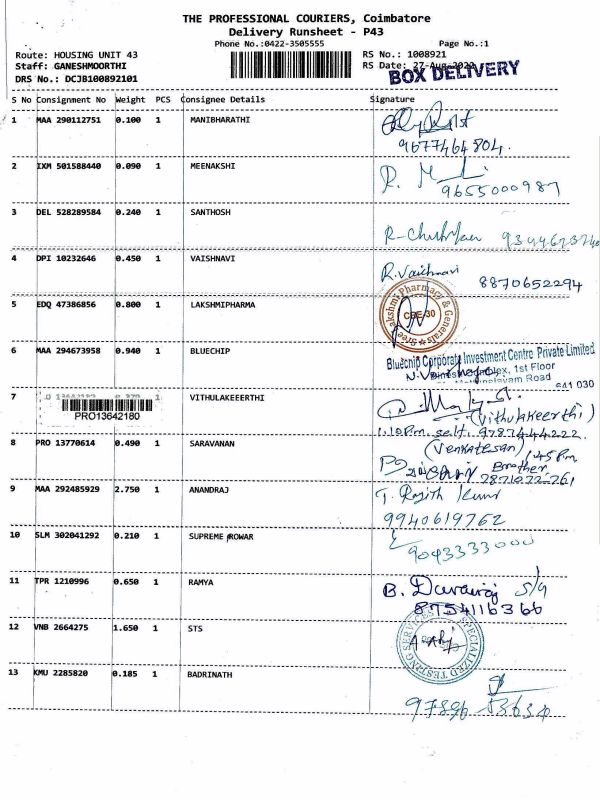 THE PROFESSIONAL COURIERS, Coimbatore
Delivery Runsheet - P43
Phone No.:0422-3505555 Page No.:1
Route: HOUSING UNIT 43 RS No.: 1008921
Staff: GANESHMOORTHI RS Date: 27-Aug-2022
DRS No.: DCJB100892101 BOX DELIVERY
S No Consignment No Weight PCS Consignee Details Signature
1 MAA 290112751 0.100 1 MANIBHARATHI
9677464804.
2 IXM 501588440 0.090 1 MEENAKSHI
9655000987
3 DEL 528289584 0.240 1 SANTHOSH
4 DPI 10232646 0.450 1 VAISHNAVI R. Vaishnavi 8870652294
5 EDQ 47386856 0.800 1 LAKSHMIPHARMA Sree Lakshmi Pharmacy & Generals CBE-30
6 MAA 294673958 0.940 1 BLUECHIP Bluechip Corporate Investment Centre Private Limited
1st Floor
Road
641 030
7 1 VITHULAKEEERTHI
PRO13642180 (Vithulakeerthi)
1.10Pm. self.
8 PRO 13770614 0.490 1 SARAVANAN (Venkatesan) 1.45 Pm
Brother
9 MAA 292485929 2.750 1 ANANDRAJ T. Rajith Kumar
9940619762
10 SLM 302041292 0.210 1 SUPREME POWAR
9043333000
11 TPR 1210996 0.650 1 RAMYA B. Durairaj
8754116366
12 VNB 2664275 1.650 1 STS SPECIALIZED TESTING SERVICES
13 KMU 2285820 0.185 1 BADRINATH